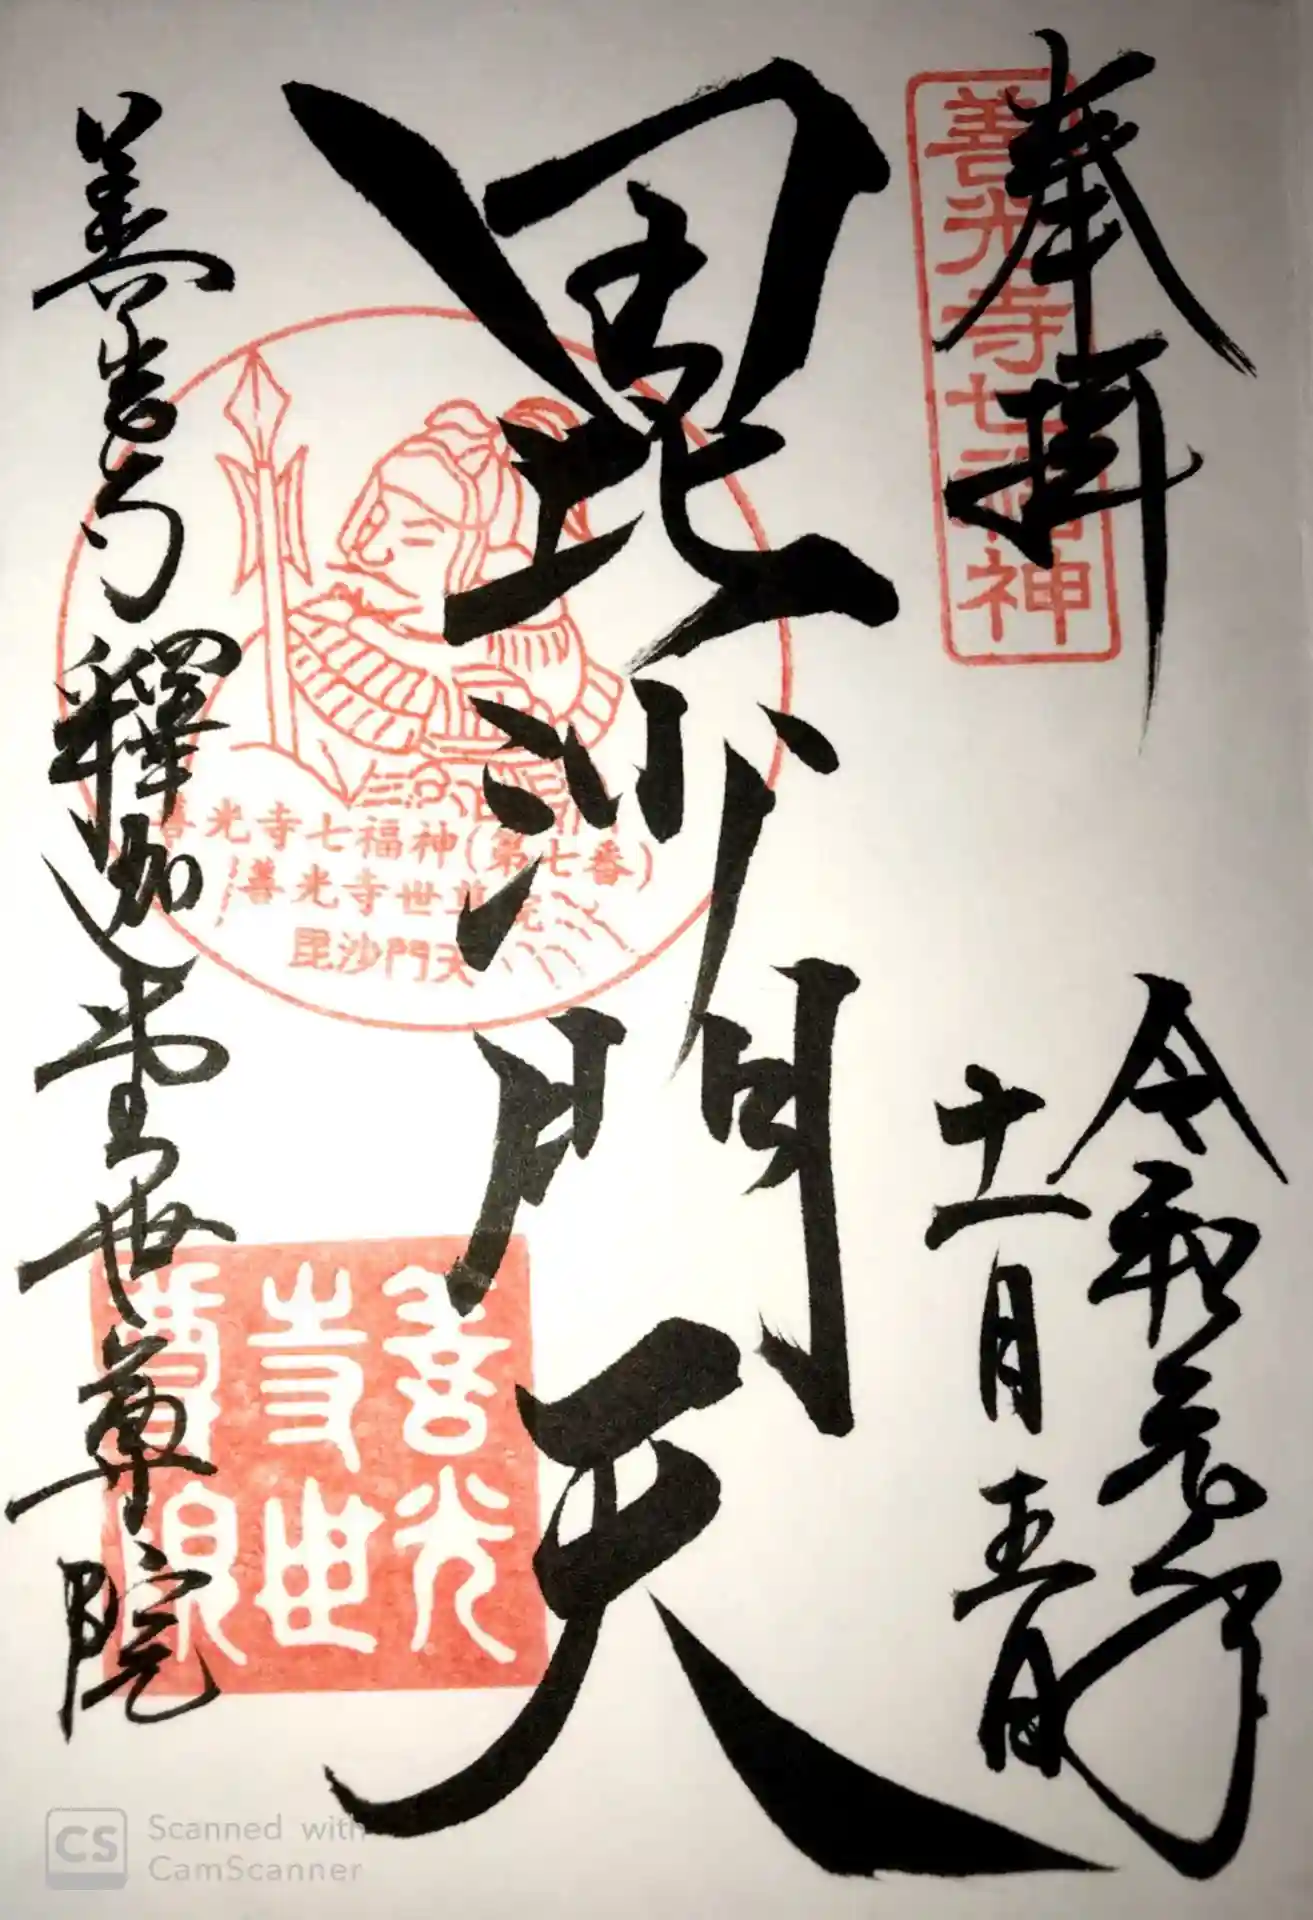 奉拝
善光寺七福神
令和元年
十一月五日
毘沙門天
善光寺七福神(第七番)
善光寺世尊院
毘沙門天
善光寺
世尊院
釋迦堂世尊院
Scanned with
CamScanner
CS